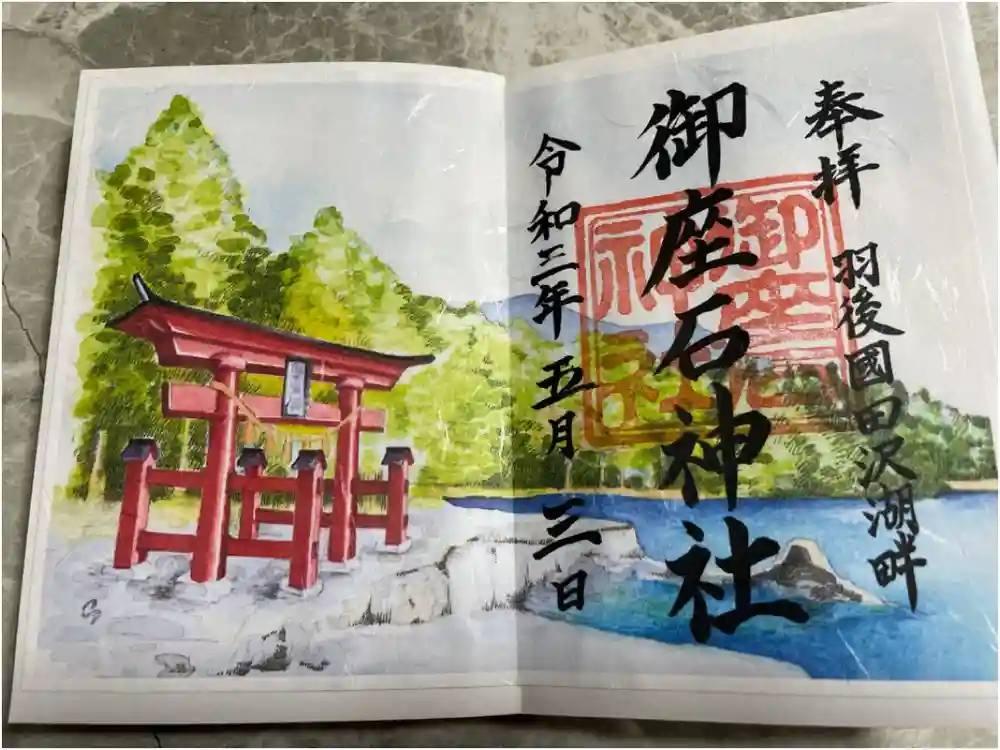 奉拝 羽後國田沢湖畔
御座石神社
令和三年 五月 三日
御座石神社